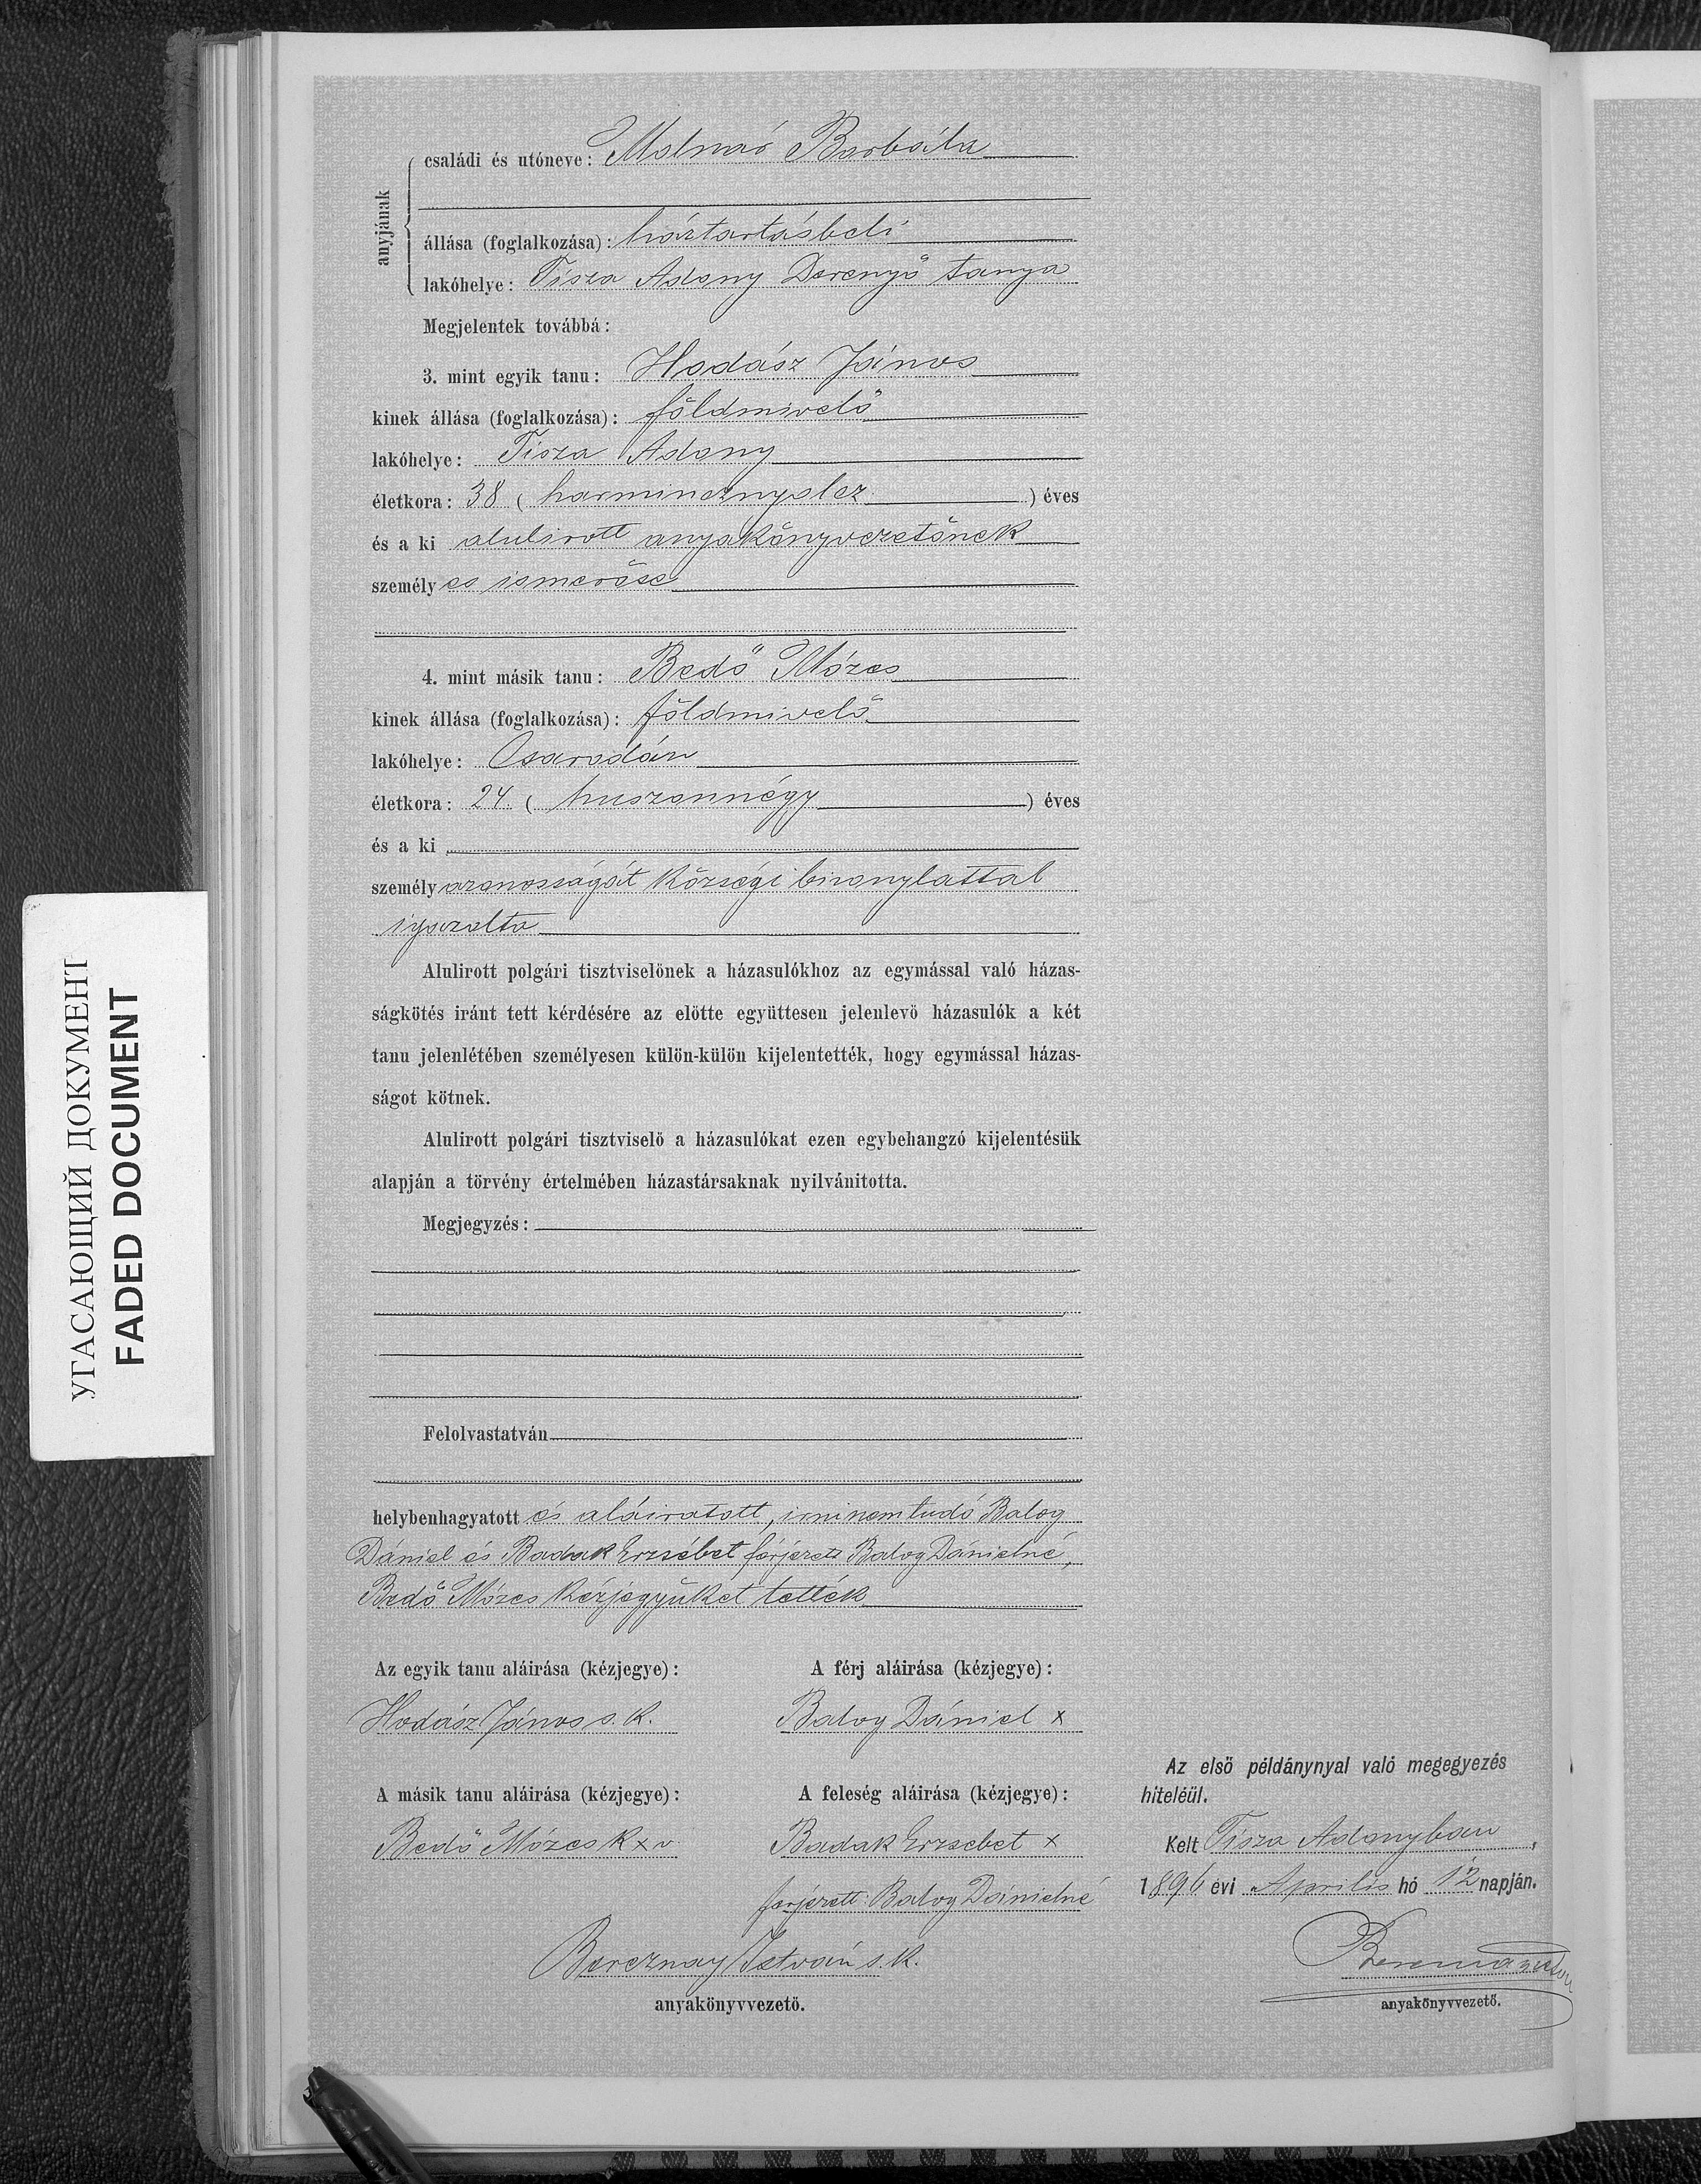 anyjának
családi és utóneve: Molnár Borbála
állása (foglalkozása): háztartásbeli
lakóhelye: Tisza Adony Derenyő tanya
Megjelentek továbbá:
3. mint egyik tanu: Hodász János
kinek állása (foglalkozása): földmivelő
lakóhelye: Tisza Adony
életkora: 38 (harmincznyolcz) éves
és a ki alulirott anyakönyvvezetőnek
személyes ismerőse
4. mint másik tanu: Bedő Mózes
kinek állása (foglalkozása): földmivelő
lakóhelye: Csarodán
életkora: 24 (huszonnégy) éves
és a ki
személyazonosságát községi bizonylattal
igazolta
Alulirott polgári tisztviselőnek a házasulókhoz az egymással való házas-
ságkötés iránt tett kérdésére az előtte együttesen jelenlevő házasulók a két
tanu jelenlétében személyesen külön-külön kijelentették, hogy egymással házas-
ságot kötnek.
Alulirott polgári tisztviselő a házasulókat ezen egybehangzó kijelentésük
alapján a törvény értelmében házastársaknak nyilvánitotta.
Megjegyzés:
Felolvastatván
helybenhagyatott és aláiratott, irni nem tudó Balog
Dániel és Badak Erzsébet férjezett Balog Dánielné,
Bedő Mózes kézjegyüket tették
Az egyik tanu aláirása (kézjegye):
Hodász János s. k.
A férj aláirása (kézjegye):
Balog Dániel x
A másik tanu aláirása (kézjegye):
Bedő Mózes k x v.
A feleség aláirása (kézjegye):
Badak Erzsebet x
férjezett Balog Dánielné
Bereznay István s. k.
anyakönyvvezető.
Az első példánynyal való megegyezés
hiteléül.
Kelt Tisza Adonyban,
1896 évi Aprilis hó 12 napján.
anyakönyvvezető.
УГАСАЮЩИЙ ДОКУМЕНТ
FADED DOCUMENT